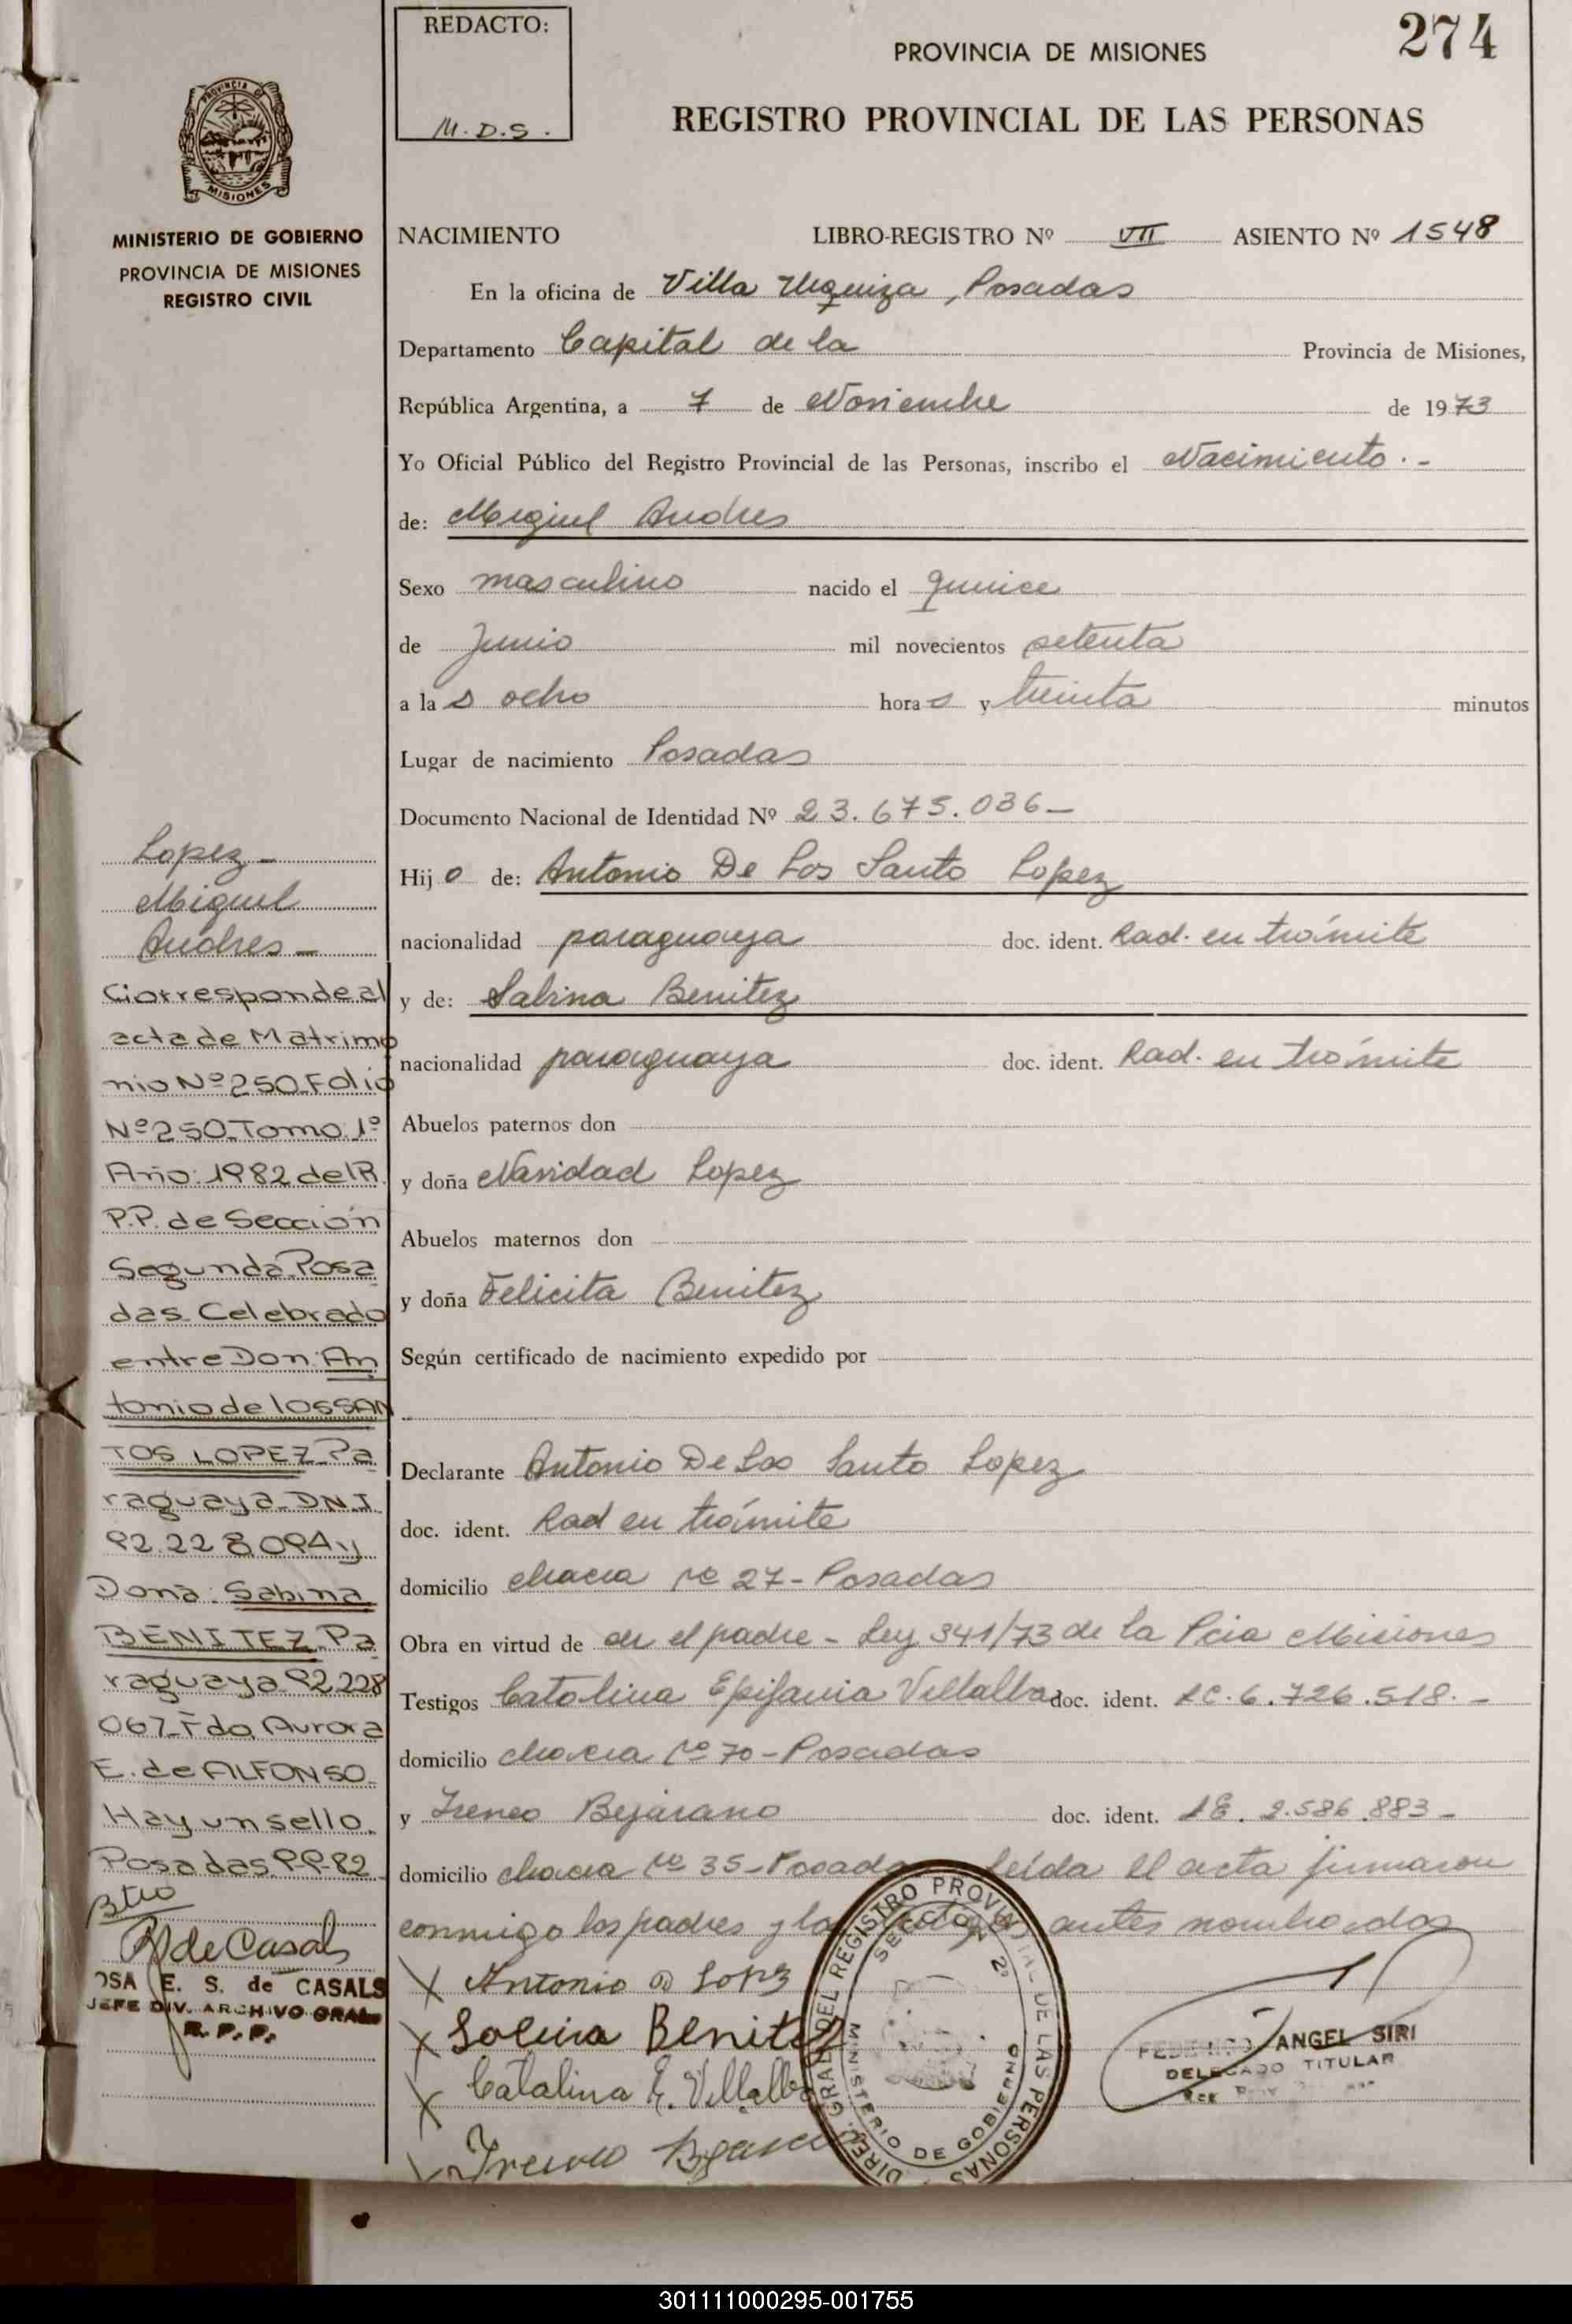 REDACTO:
M.D.S.
274
PROVINCIA DE MISIONES
REGISTRO PROVINCIAL DE LAS PERSONAS
PROVINCIA DE
MISIONES
MINISTERIO DE GOBIERNO
PROVINCIA DE MISIONES
REGISTRO CIVIL
NACIMIENTO LIBRO-REGISTRO Nº VII ASIENTO Nº 1548
En la oficina de Villa Urquiza, Posadas
Departamento Capital de la Provincia de Misiones,
República Argentina, a 7 de Noviembre de 1973
Yo Oficial Público del Registro Provincial de las Personas, inscribo el Nacimiento.-
de: Miguel Andres
Sexo masculino nacido el quince
de Junio mil novecientos setenta
a las ocho horas y treinta minutos
Lugar de nacimiento Posadas
Documento Nacional de Identidad Nº 23.675.036-
Hijo de: Antonio De Los Santo Lopez
nacionalidad paraguaya doc. ident. Rad. en trámite
y de: Sabina Benitez
nacionalidad paraguaya doc. ident. Rad. en trámite
Abuelos paternos don
y doña Navidad Lopez
Abuelos maternos don
y doña Felicita Benitez
Según certificado de nacimiento expedido por
Declarante Antonio De Los Santo Lopez
doc. ident. Rad en trámite
domicilio chacra Nº 27-Posadas
Obra en virtud de ser el padre - Ley 341/73 de la Pcia Misiones
Testigos Catalina Epifania Villalba doc. ident. LC. 6.726.518.-
domicilio chacra Nº 70-Posadas
y Ireneo Bejarano doc. ident. LE. 2.586.883-
domicilio chacra Nº 35-Posadas leída el acta firmaron
conmigo los padres y los testigos antes nombrados
X Antonio D Lopz
X Sabina Benitez
X Catalina E. Villalba
Ireneo Bejarano
DIREC. GRAL. DEL REGISTRO PROVINCIAL DE LAS PERSONAS
SECCION 2ª
MINISTERIO DE GOBIERNO
ANGEL SIRI
DELEGADO TITULAR
Lopez-
Miguel
Andres-
Corresponde al
acta de Matrimo
nio Nº250 Folio
Nº250 Tomo 1º
Año:1982 del R.
P.P. de Sección
Segunda Posa
das Celebrado
entre Don: An
tonio de los SAN
TOS LOPEZ-Pa
raguaya-DN.I.
92.228.094 y
Dona: Sabina
BENITEZ-Pa
raguaya 92.228
067-Fdo Aurora
E. de ALFONSO-
Hay un sello.
Posadas 9-9-82
R de Casals
OSA E. S. de CASALS
JEFE DIV. ARCHIVO GRAL.
R. P. P.
301111000295-001755